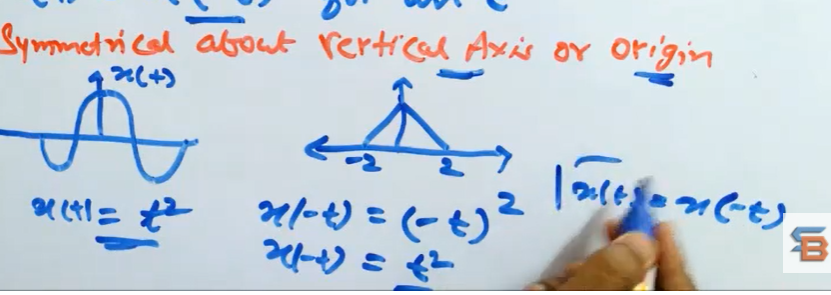 Symmetrical about vertical Axis or origin
x(t)
-2 2
x(t) = t²
x(-t) = (-t)²
x(-t) = t²
x(t) = x(-t)
SB